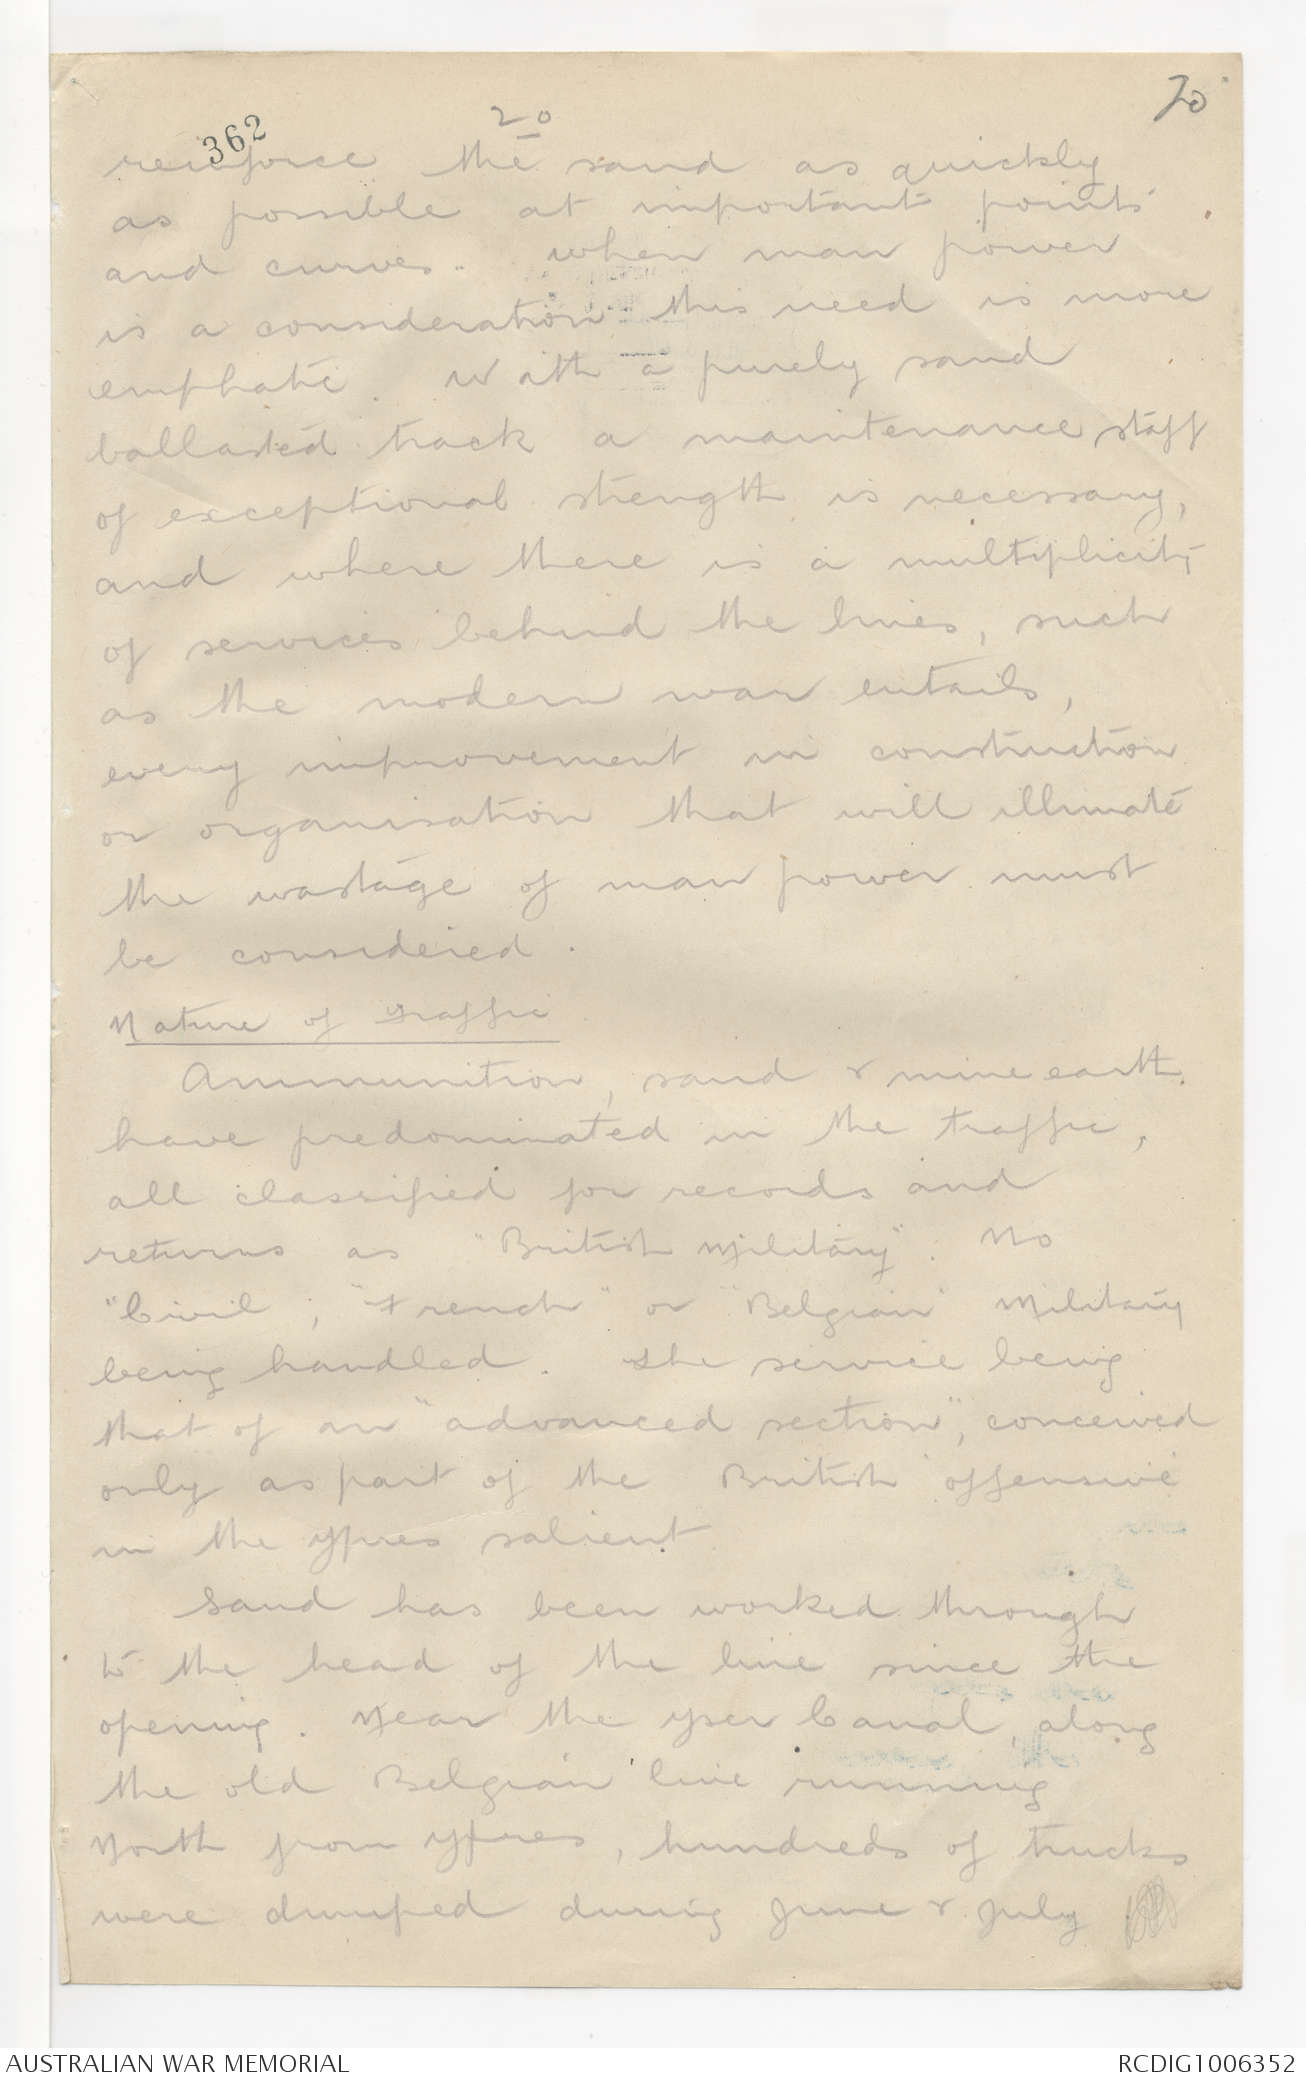 362
20
20
reinforce the sand as quickly
as possible at important points
and curves. When man power
is a consideration this need is more
emphatic. With a purely sand
ballasted track a maintenance staff
of exceptional strength is necessary,
and where there is a multiplicity
of services behind the lines, such
as the modern war entails,
every improvement in construction
or organisation that will illimate
the wastage of man power must
be considered.
Nature of Traffic
Ammunition, sand & mine earth
have predominated in the traffic,
all classified for records and
returns as "British Military". No
"Civil, "French" or "Belgian" Military
being handled. The service being
that of an "advanced section", conceived
only as part of the British offensive
in the Ypres salient.
Sand has been worked through
to the head of the line since the
opening. Near the Yser Canal, along
the old Belgian line running
North from Ypres, hundreds of trucks
were dumped during June & July
AUSTRALIAN WAR MEMORIAL
RCDIG1006352